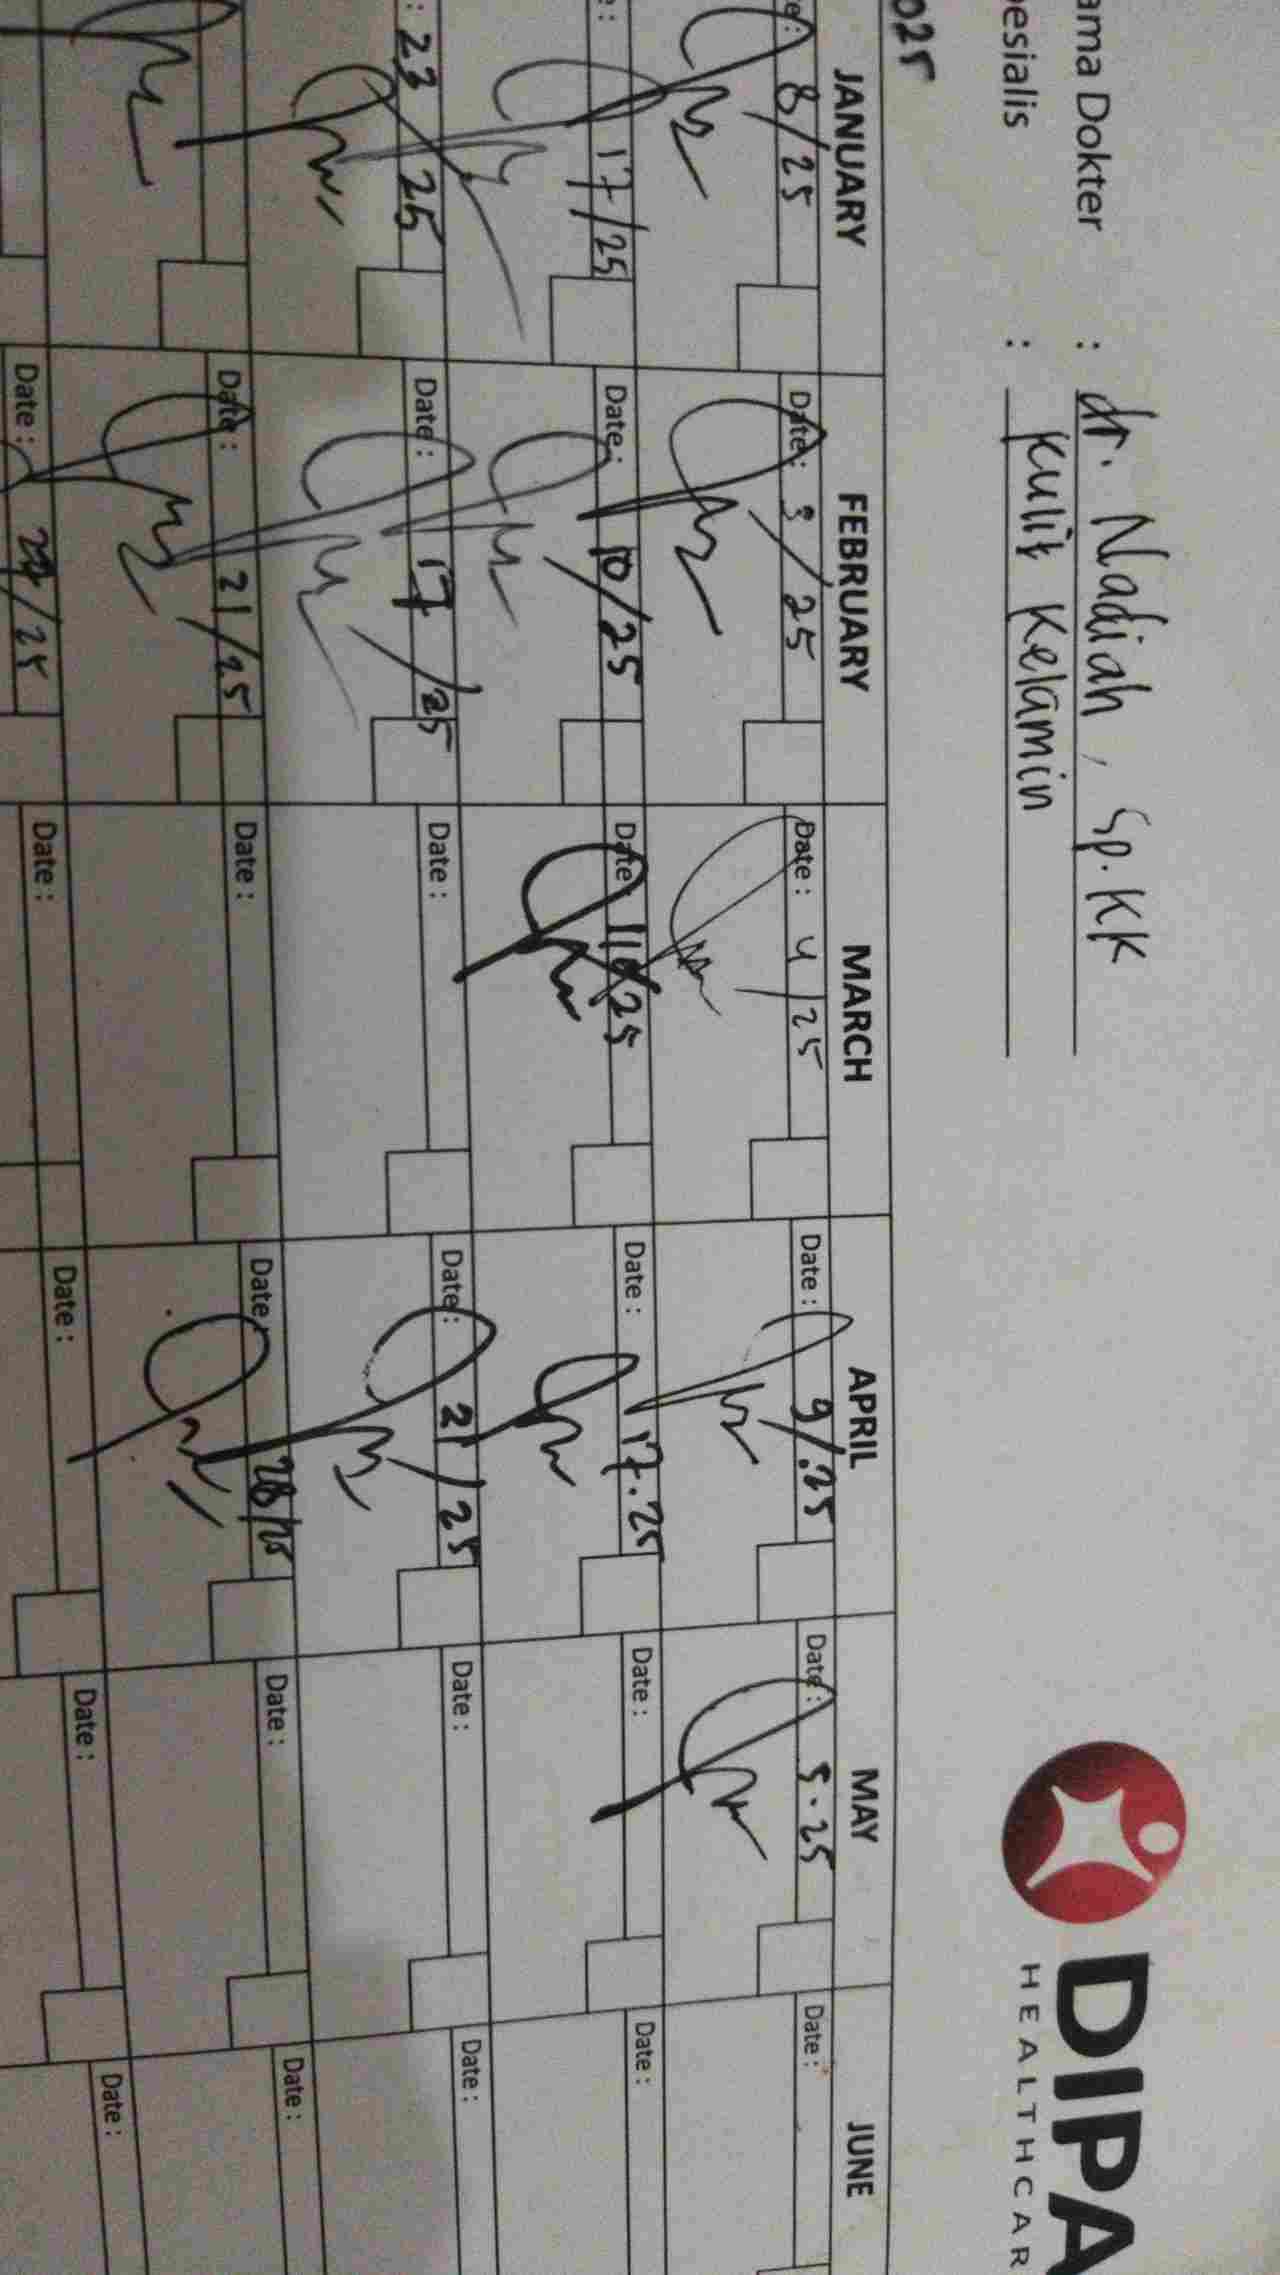 DIPA
HEALTHCAR
ama Dokter : dr. Nadiah, Sp.KK
esialis : Kulit Kelamin
025
JANUARY FEBRUARY MARCH APRIL MAY JUNE
e: 8/25 Date: 3/25 Date: 4/25 Date: 9/.25 Date: 5.25 Date:
e: 17/25 Date: 10/25 Date: 11/25 Date: 17.25 Date: Date:
: 23 25 Date: 17/25 Date: Date: 21/25 Date: Date:
Date: 21/25 Date: Date: 28/25 Date: Date:
Date: /25 Date: Date: Date: Date: